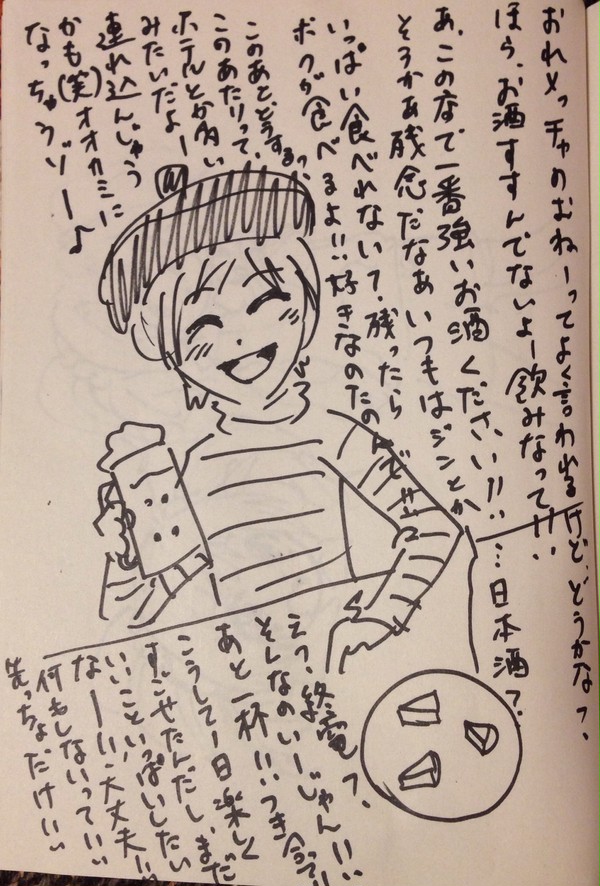 おれメッチャのむねーってよく言われるけど、どうかな?、
ほら、お酒すすんでないよー飲みなって!!、
あ、この店で一番強いお酒ください!!、…日本酒?、
そうかぁ残念だなあいつもはジンとか
いっぱい食べれない?、残ったら
ボクが食べるよ!!好きなのたのんで!!
このあとどうするっ、
このあたりって、
ホテルとか多い
みたいだよー
連れ込んじゃう
かも(笑)オオカミに
なっちゃうゾー♪
えっ、終電?、
そんなのいーじゃん!!、
あと一杯!!つき合って!!
こうして1日楽しく
すごせたんだし、まだ
いいこといっぱいしたい
なー!!、大丈夫!!
何もしないって!!
先っちょだけ!!